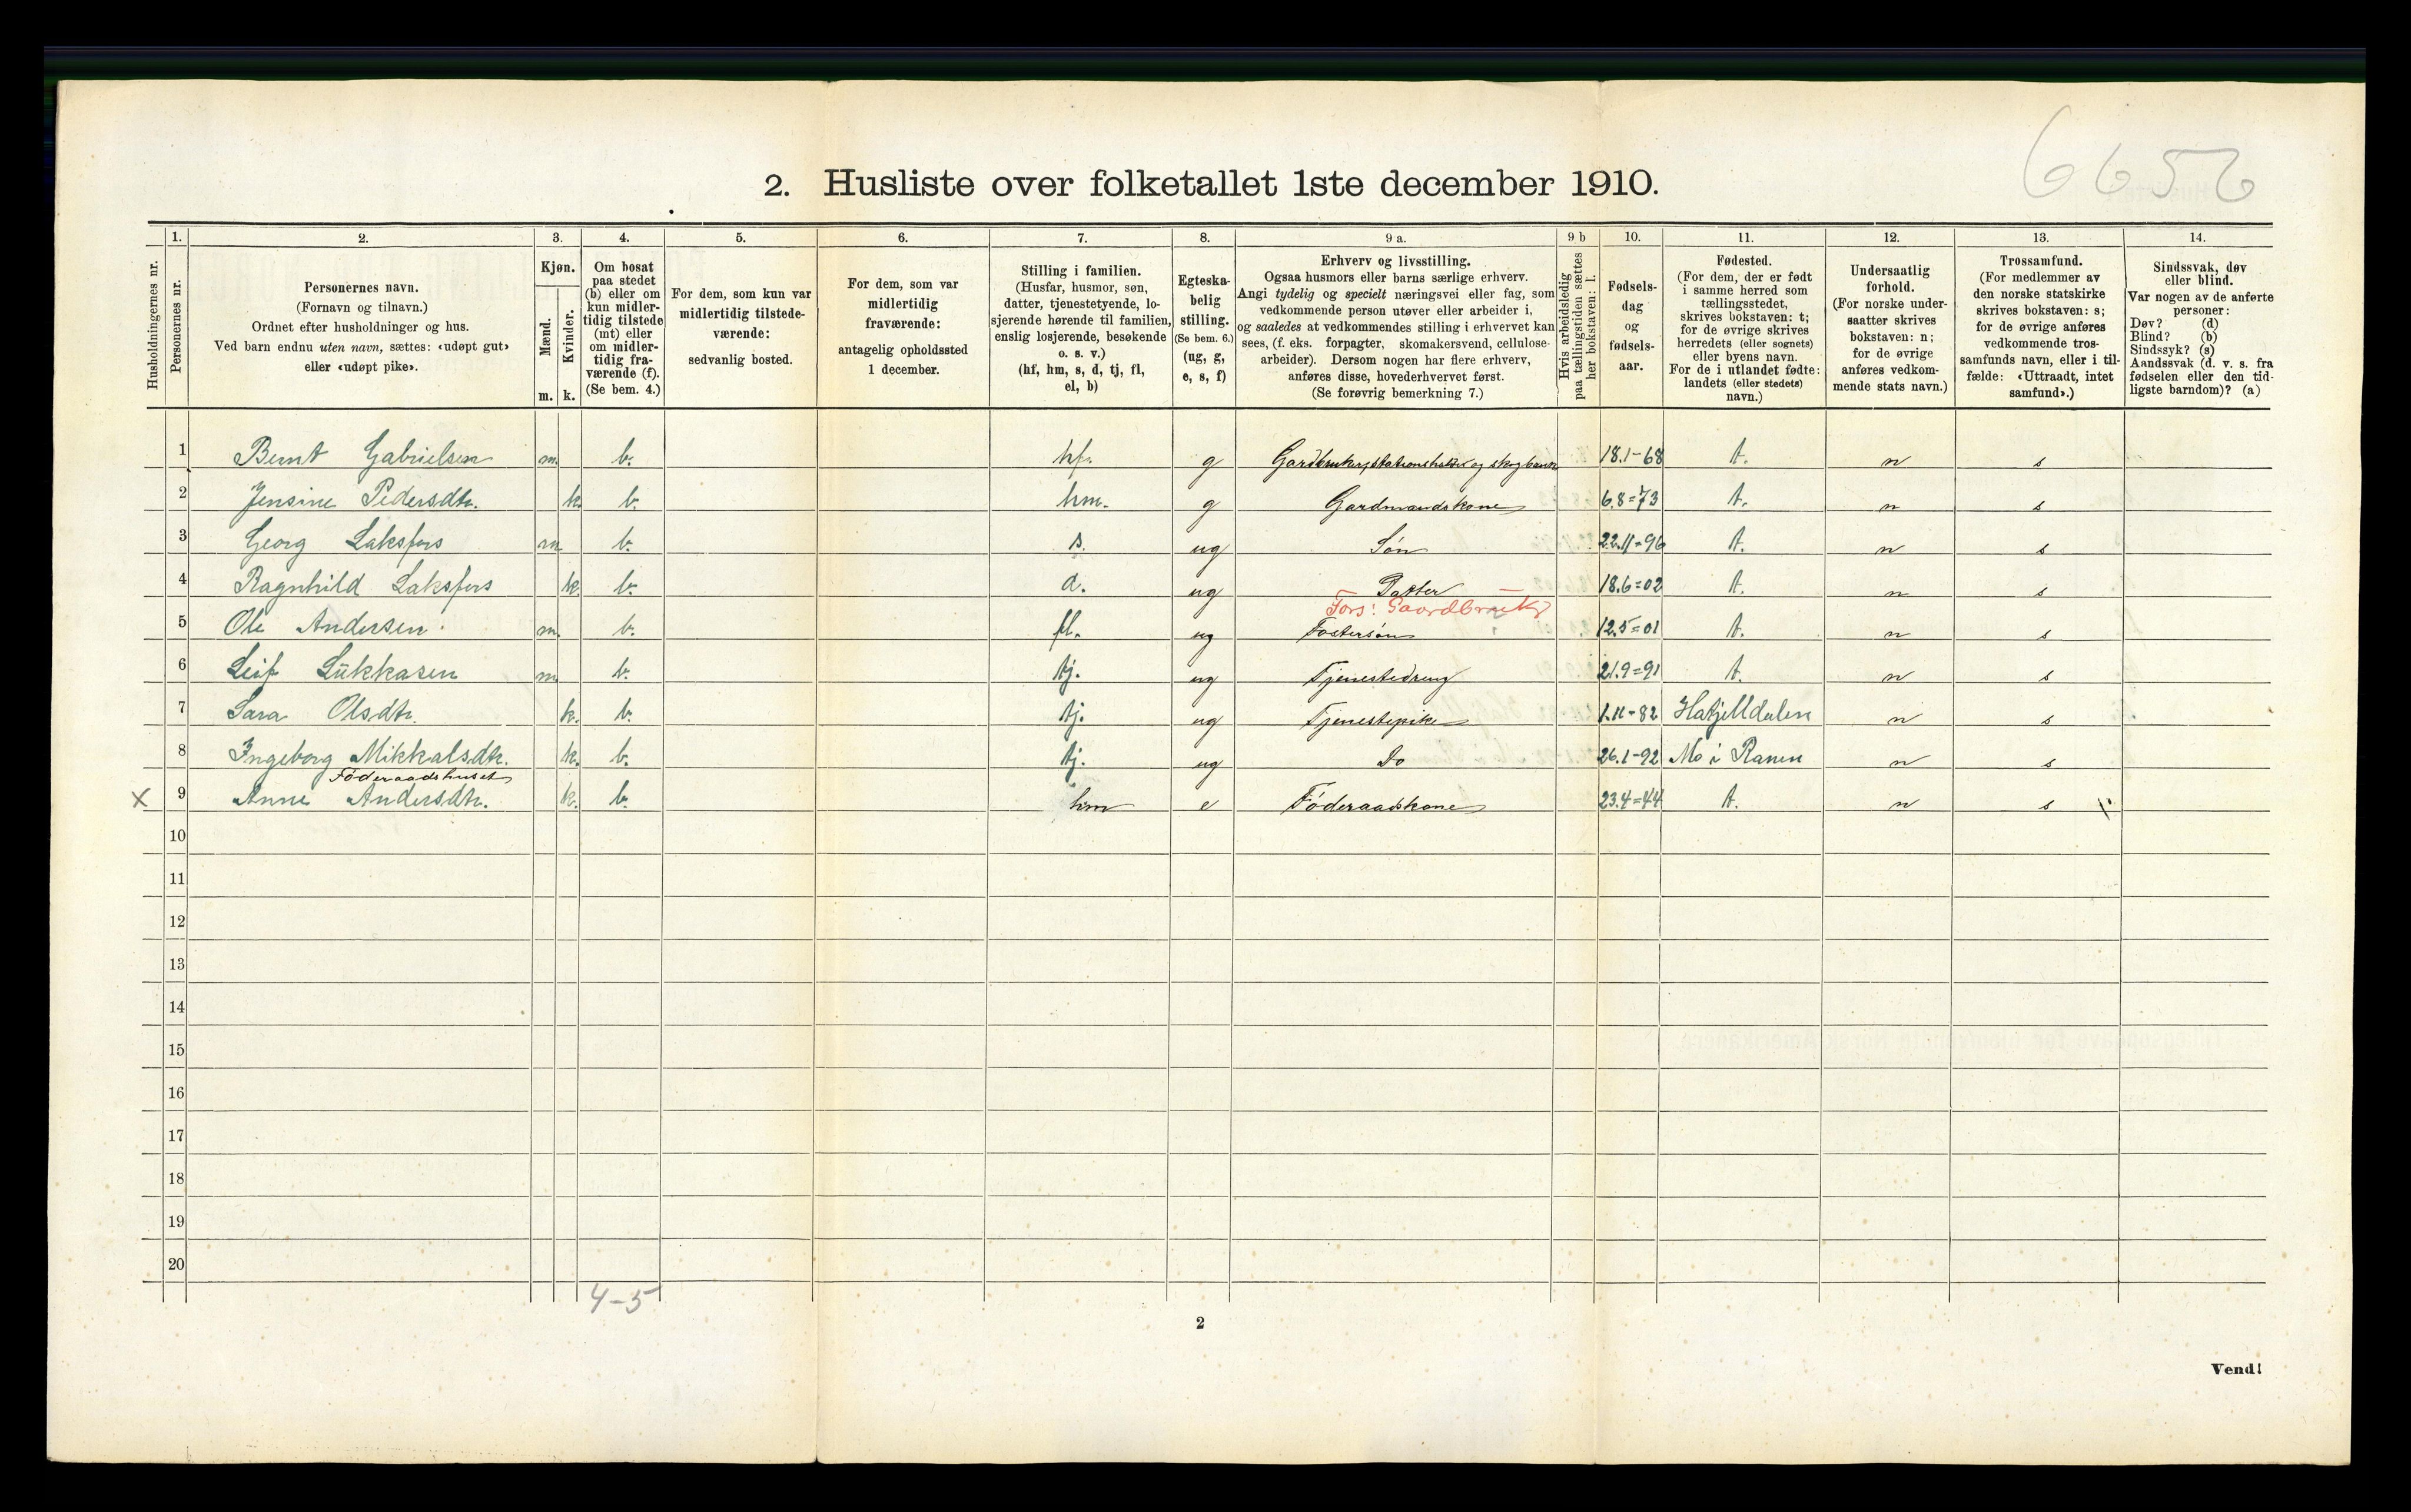 6656
2. Husliste over folketallet 1ste december 1910.
Husholdningernes nr.
1.
Personernes nr.
2.
Personernes navn.
(Fornavn og tilnavn.)
Ordnet efter husholdninger og hus.
Ved barn endnu uten navn, sættes: «udøpt gut»
eller «udøpt pike».
3.
Kjøn.
Mænd.
Kvinder.
m. k.
4.
Om bosat
paa stedet
(b) eller om
kun midler-
tidig tilstede
(mt) eller
om midler-
tidig fra-
værende (f).
(Se bem. 4.)
5.
For dem, som kun var
midlertidig tilstede-
værende:
sedvanlig bosted.
6.
For dem, som var
midlertidig
fraværende:
antagelig opholdssted
1 december.
7.
Stilling i familien.
(Husfar, husmor, søn,
datter, tjenestetyende, lo-
sjerende hørende til familien,
enslig losjerende, besøkende
o. s. v.)
(hf, hm, s, d, tj, fl,
el, b)
8.
Egteska-
belig
stilling.
(Se bem. 6.)
(ug, g,
e, s, f)
9 a.
Erhverv og livsstilling.
Ogsaa husmors eller barns særlige erhverv.
Angi tydelig og specielt næringsvei eller fag, som
vedkommende person utøver eller arbeider i,
og saaledes at vedkommendes stilling i erhvervet kan
sees, (f. eks. forpagter, skomakersvend, cellulose-
arbeider). Dersom nogen har flere erhverv,
anføres disse, hovederhvervet først.
(Se forøvrig bemerkning 7.)
9 b
Hvis arbeidsledig
paa tællingstiden sættes
her bokstaven: l.
10.
Fødsels-
dag
og
fødsels-
aar.
11.
Fødested.
(For dem, der er født
i samme herred som
tællingsstedet,
skrives bokstaven: t;
for de øvrige skrives
herredets (eller sognets)
eller byens navn.
For de i utlandet fødte:
landets (eller stedets)
navn.)
12.
Undersaatlig
forhold.
(For norske under-
saatter skrives
bokstaven: n;
for de øvrige
anføres vedkom-
mende stats navn.)
13.
Trossamfund.
(For medlemmer av
den norske statskirke
skrives bokstaven: s;
for de øvrige anføres
vedkommende tros-
samfunds navn, eller i til-
fælde: «Uttraadt, intet
samfund».)
14.
Sindssvak, døv
eller blind.
Var nogen av de anførte
personer:
Døv? (d)
Blind? (b)
Sindssyk? (s)
Aandssvak (d. v. s. fra
fødselen eller den tid-
ligste barndom)? (a)
1 Bernt Gabrielsen m. b. hf. g Gardbruker, stationsholder og skog 18.1-68 t. n s
2 Jensine Pedersdtr. k. b. hm. g Gardmandskone 6.8=73 t. n s
3 Georg Laksfors m b. s. ug Søn 22.11=96 t. n s
4 Ragnhild Laksfors k. b. d. ug Datter 18.6=02 t. n s
Fors: Gaardbruk
5 Ole Andersen m. b. fl. ug Fostersøn 12.5=01 t. n s
6 Leif Lükkasen m b. tj. ug Tjenestedreng 21.9=91 t. n s
7 Sara Olsdtr. k. b. tj. ug Tjenestepike 1.11-82 Hatfjelldalen n s
8 Ingeborg Mikkalsdtr. k. b. tj. ug Do 26.1-92 Mo i Ranen n s
Föderaadshuset
x 9 Anne Andersdtr. k. b. hm e Föderaadskone 23.4=44 t. n s
10
11
12
13
14
15
16
17
18
19
20
4-5
2
Vend!